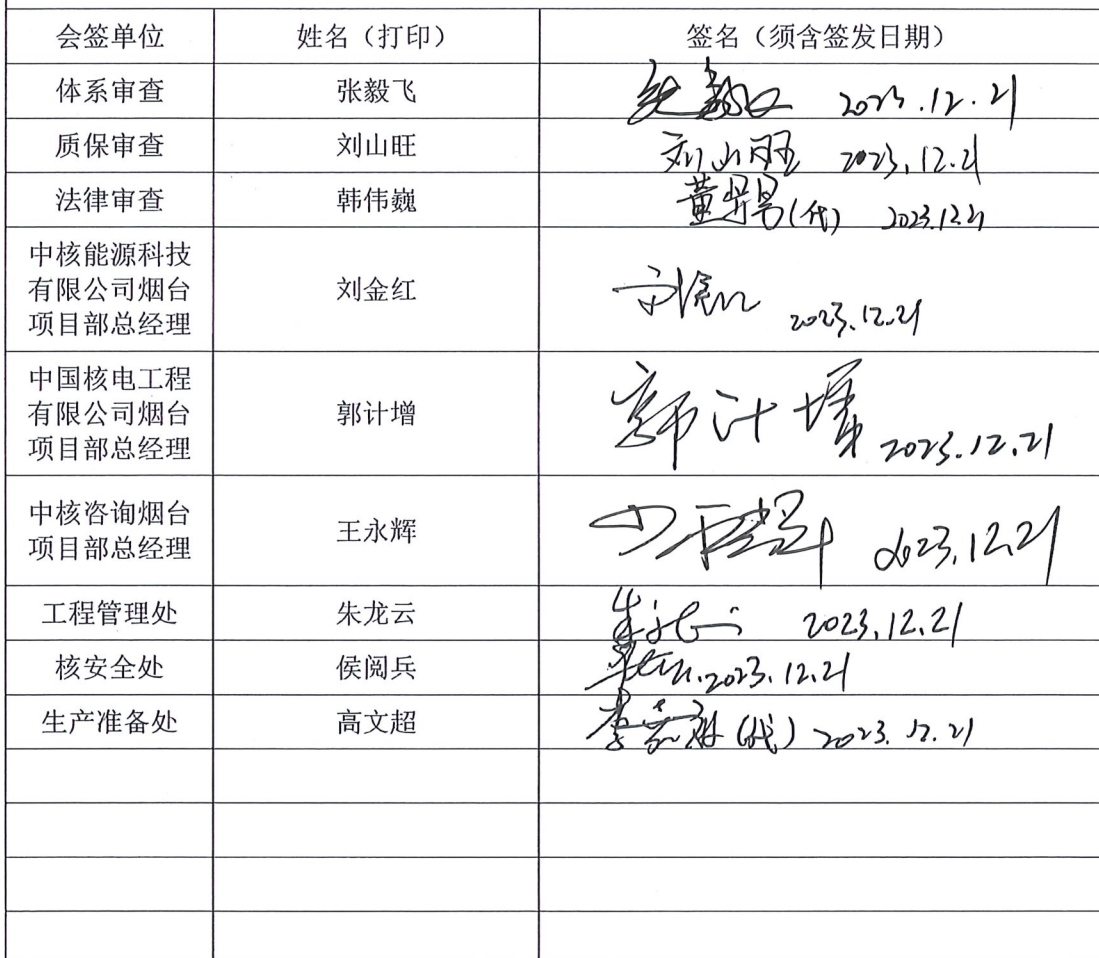 会签单位 姓名（打印） 签名（须含签发日期）
体系审查 张毅飞 2023.12.21
质保审查 刘山旺 刘山旺 2023.12.21
法律审查 韩伟巍 黄昇昌(代) 2023.12.21
中核能源科技
有限公司烟台
项目部总经理
刘金红
刘金红 2023.12.21
中国核电工程
有限公司烟台
项目部总经理
郭计增
郭计增 2023.12.21
中核咨询烟台
项目部总经理
王永辉
2023.12.21
工程管理处 朱龙云 朱龙云 2023.12.21
核安全处 侯阅兵 2023.12.21
生产准备处 高文超 (代) 2023.12.21